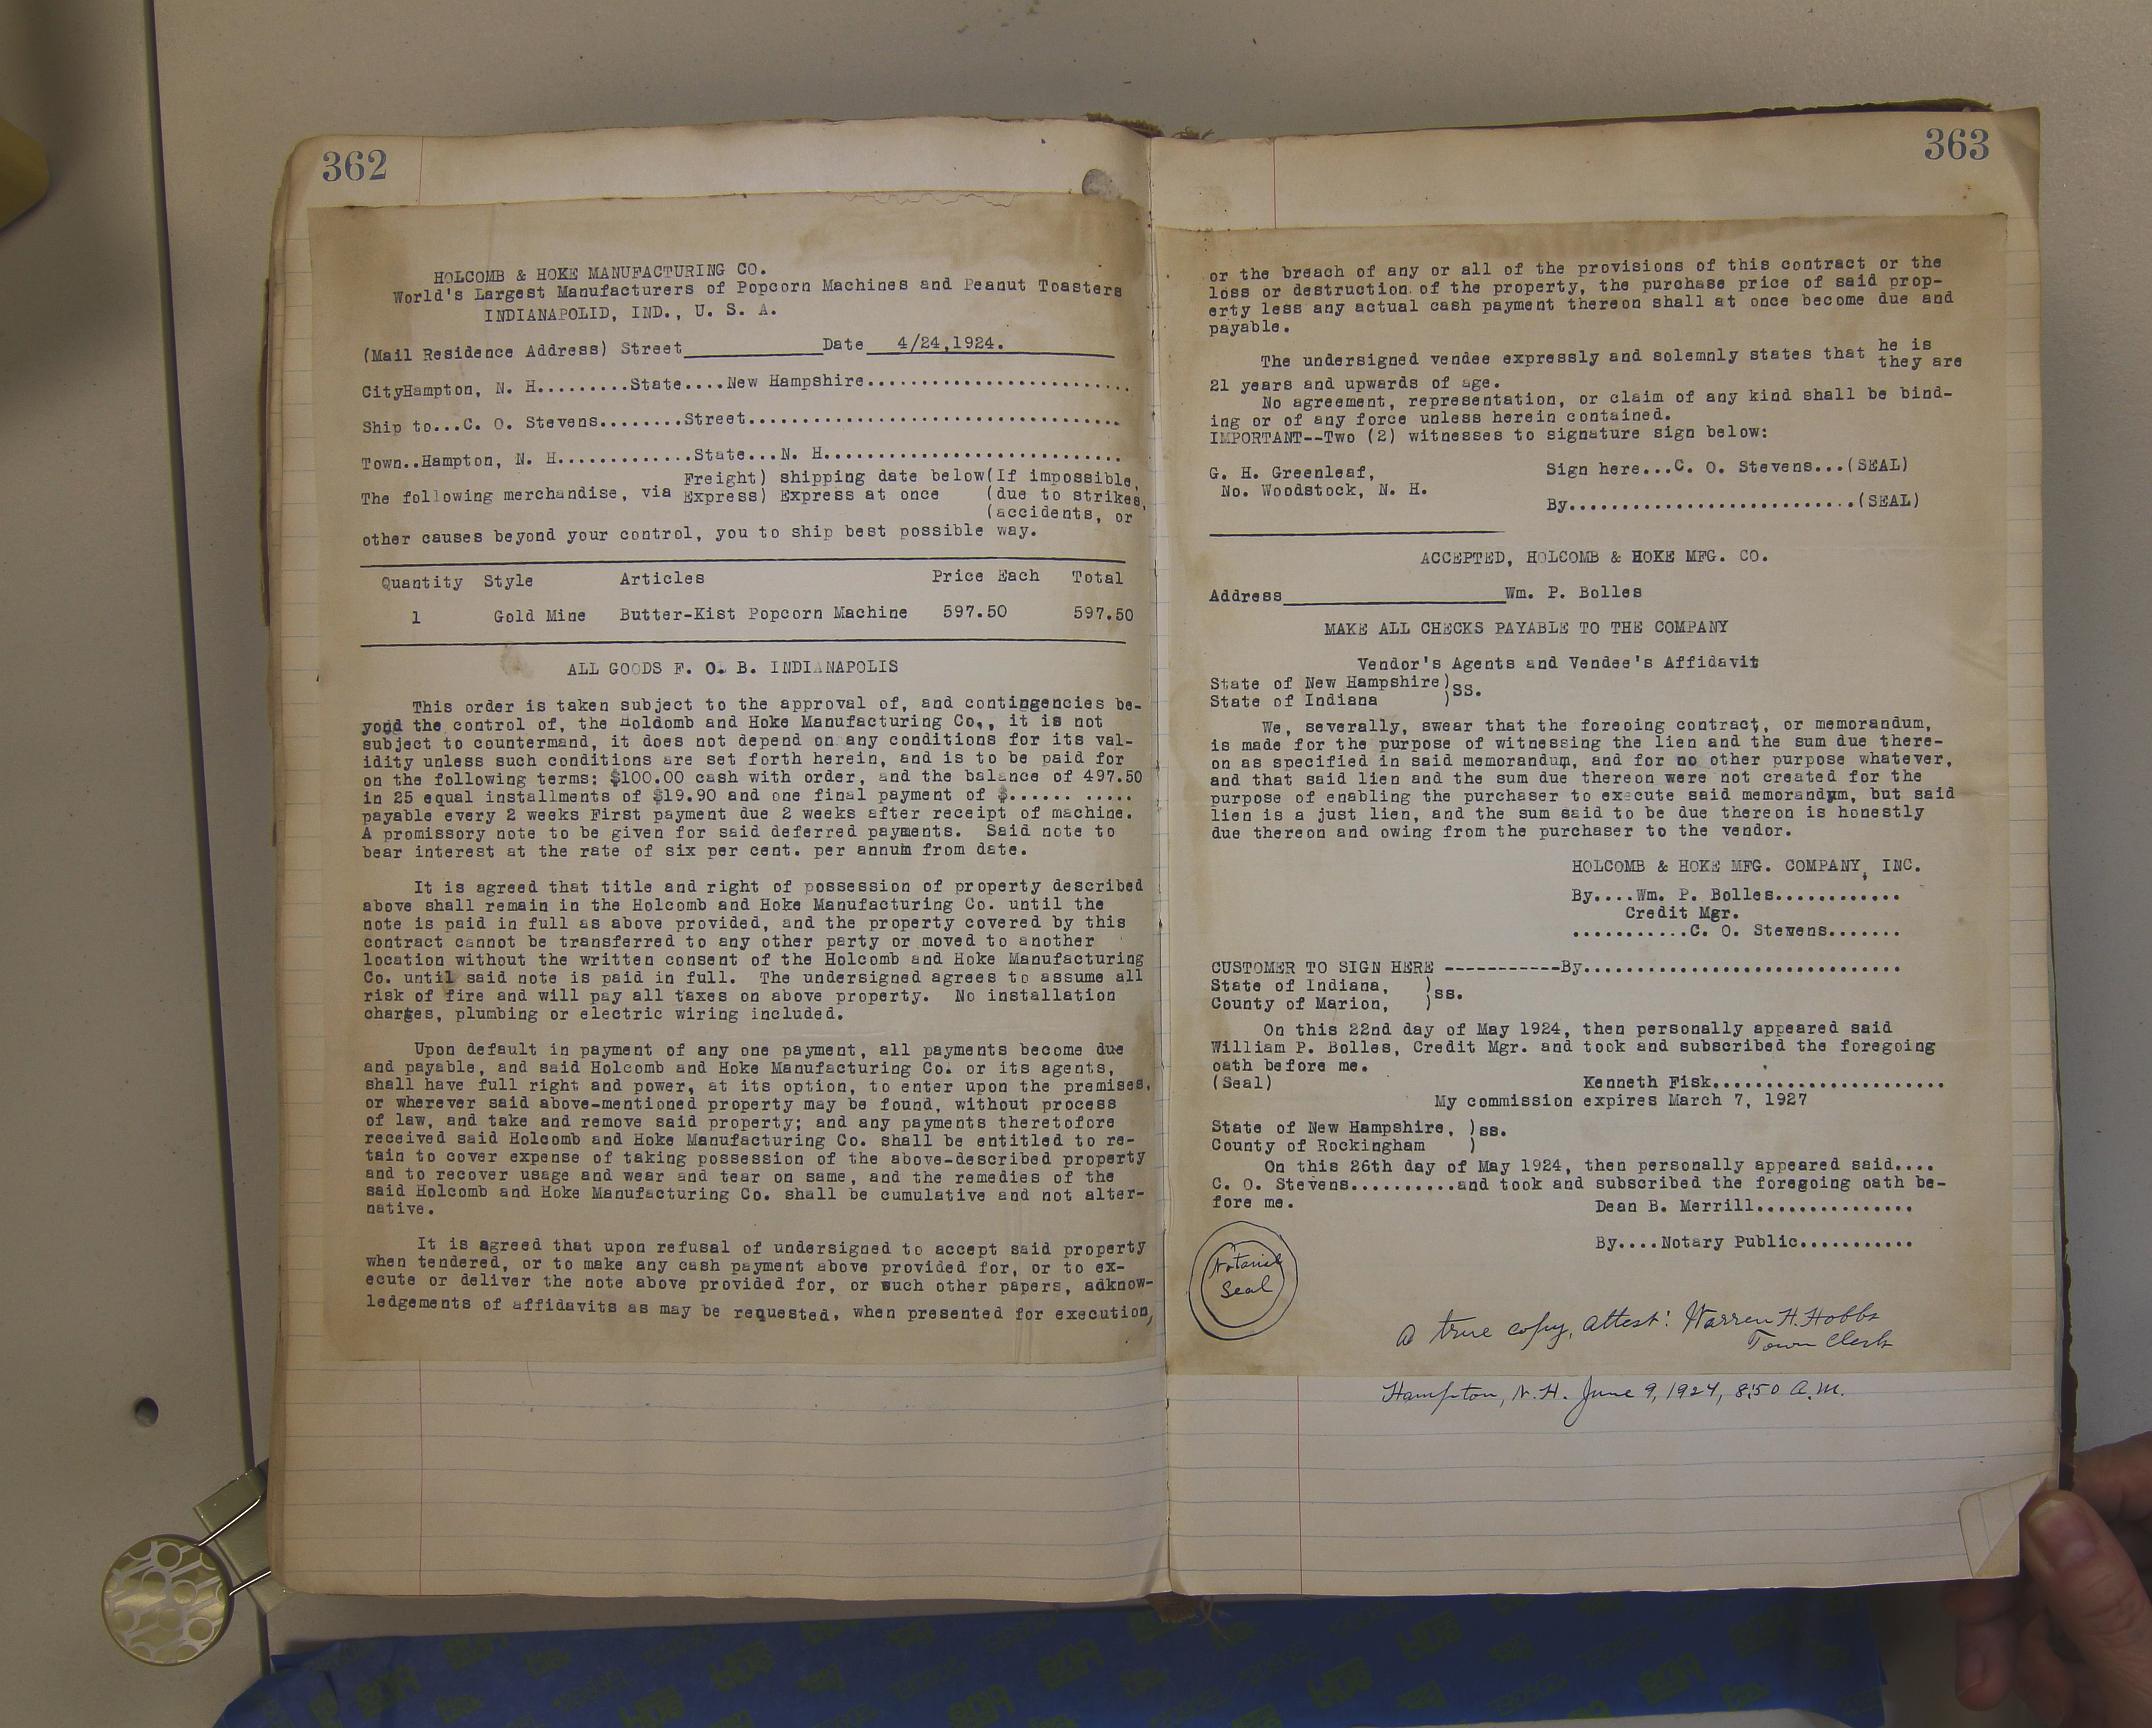 362
HOLCOMB & HOKE MANUFACTURING CO.
World's Largest Manufacturers of Popcorn Machines and Peanut Toasters
INDIANAPOLID, IND., U. S. A.
(Mail Residence Address) Street__________Date__4/24,1924.________
CityHampton, N. H.........State....New Hampshire..........................
Ship to...C. O. Stevens........Street....................................
Town..Hampton, N. H.............State...N. H.............................
Freight) shipping date below(If impossible,
The following merchandise, via Express) Express at once (due to strikes,
(accidents, or
other causes beyond your control, you to ship best possible way.
Quantity Style Articles Price Each Total
1 Gold Mine Butter-Kist Popcorn Machine 597.50 597.50
ALL GOODS F. O. B. INDIANAPOLIS
This order is taken subject to the approval of, and contingencies be-
yond the control of, the Holdomb and Hoke Manufacturing Co., it is not
subject to countermand, it does not depend on any conditions for its val-
idity unless such conditions are set forth herein, and is to be paid for
on the following terms: $100.00 cash with order, and the balance of 497.50
in 25 equal installments of $19.90 and one final payment of $...... .....
payable every 2 weeks First payment due 2 weeks after receipt of machine.
A promissory note to be given for said deferred payments. Said note to
bear interest at the rate of six per cent. per annum from date.
It is agreed that title and right of possession of property described
above shall remain in the Holcomb and Hoke Manufacturing Co. until the
note is paid in full as above provided, and the property covered by this
contract cannot be transferred to any other party or moved to another
location without the written consent of the Holcomb and Hoke Manufacturing
Co. until said note is paid in full. The undersigned agrees to assume all
risk of fire and will pay all taxes on above property. No installation
charges, plumbing or electric wiring included.
Upon default in payment of any one payment, all payments become due
and payable, and said Holcomb and Hoke Manufacturing Co. or its agents,
shall have full right and power, at its option, to enter upon the premises,
or wherever said above-mentioned property may be found, without process
of law, and take and remove said property; and any payments theretofore
received said Holcomb and Hoke Manufacturing Co. shall be entitled to re-
tain to cover expense of taking possession of the above-described property
and to recover usage and wear and tear on same, and the remedies of the
said Holcomb and Hoke Manufacturing Co. shall be cumulative and not alter-
native.
It is agreed that upon refusal of undersigned to accept said property
when tendered, or to make any cash payment above provided for, or to ex-
ecute or deliver the note above provided for, or such other papers, adknow-
ledgements of affidavits as may be requested, when presented for execution,
363
or the breach of any or all of the provisions of this contract or the
loss or destruction of the property, the purchase price of said prop-
erty less any actual cash payment thereon shall at once become due and
payable.
The undersigned vendee expressly and solemnly states that he is
they are
21 years and upwards of age.
No agreement, representation, or claim of any kind shall be bind-
ing or of any force unless herein contained.
IMPORTANT--Two (2) witnesses to signature sign below:
G. H. Greenleaf, Sign here...C. O. Stevens...(SEAL)
No. Woodstock, N. H.
By...........................(SEAL)
ACCEPTED, HOLCOMB & HOKE MFG. CO.
Address__________________Wm. P. Bolles
MAKE ALL CHECKS PAYABLE TO THE COMPANY
Vendor's Agents and Vendee's Affidavit
State of New Hampshire)
State of Indiana )SS.
We, severally, swear that the foreoing contract, or memorandum,
is made for the purpose of witnessing the lien and the sum due there-
on as specified in said memorandum, and for no other purpose whatever,
and that said lien and the sum due thereon were not created for the
purpose of enabling the purchaser to execute said memorandym, but said
lien is a just lien, and the sum said to be due thereon is honestly
due thereon and owing from the purchaser to the vendor.
HOLCOMB & HOKE MFG. COMPANY, INC.
By....Wm. P. Bolles............
Credit Mgr.
...........C. O. Stevens.......
CUSTOMER TO SIGN HERE -----------By..............................
State of Indiana, )
County of Marion, )ss.
On this 22nd day of May 1924, then personally appeared said
William P. Bolles, Credit Mgr. and took and subscribed the foregoing
oath before me.
(Seal) Kenneth Fisk......................
My commission expires March 7, 1927
State of New Hampshire, )ss.
County of Rockingham )
On this 26th day of May 1924, then personally appeared said....
C. O. Stevens..........and took and subscribed the foregoing oath be-
fore me.
Dean B. Merrill...............
By....Notary Public...........
Notarial
Seal
A true copy, attest: Warren H. Hobbs
Town Clerk
Hampton, N. H. June 9, 1924, 8:50 A.M.